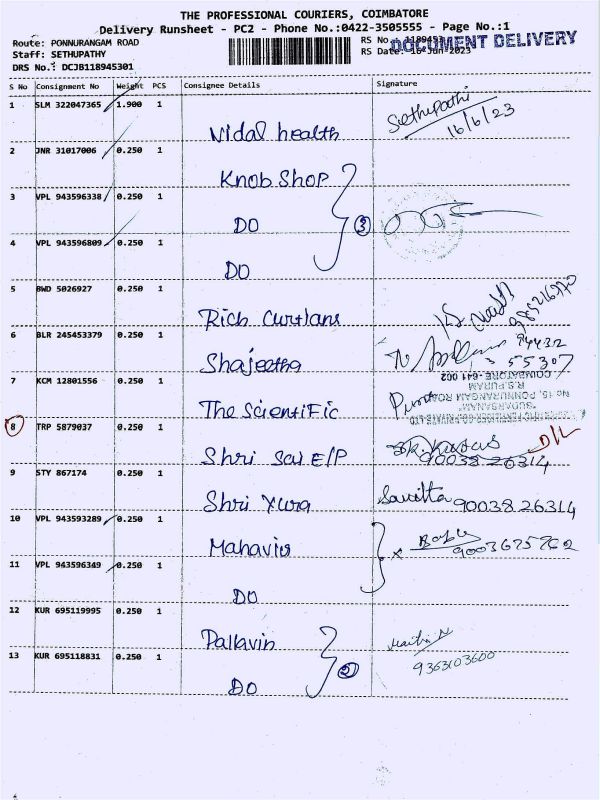 THE PROFESSIONAL COURIERS, COIMBATORE
Delivery Runsheet - PC2 - Phone No.:0422-3505555 - Page No.:1
Route: PONNURANGAM ROAD
Staff: SETHUPATHY
DRS No.: DCJB118945301
RS No. : 1189453
RS Date: 16-Jun-2023
DOCUMENT DELIVERY
S No Consignment No Weight PCS Consignee Details Signature
1 SLM 322047365 1.900 1 Vidal health Sethupathi
16/6/23
2 JNR 31017006 0.250 1 Knob Shop
3 VPL 943596338 0.250 1 DO ③
4 VPL 943596809 0.250 1 DO
5 BWD 5026927 0.250 1 Rich Curtians
6 BLR 245453379 0.250 1 Shajeetha 94432
55307
7 KCM 12801556 0.250 1 The Scientific
COIMBATORE - 641 002
R.S.PURAM
No 15, PONNURANGAM ROAD
"SUDARSANAM"
8 TRP 5879037 0.250 1 Shri Sai E/P D/L
90038 26314
9 STY 867174 0.250 1 Shri Yura Savitta 90038 26314
10 VPL 943593289 0.250 1 Mahavir Babu
9003675762
11 VPL 943596349 0.250 1 DO
12 KUR 695119995 0.250 1 Pallavin
9363103600
13 KUR 695118831 0.250 1 DO ②